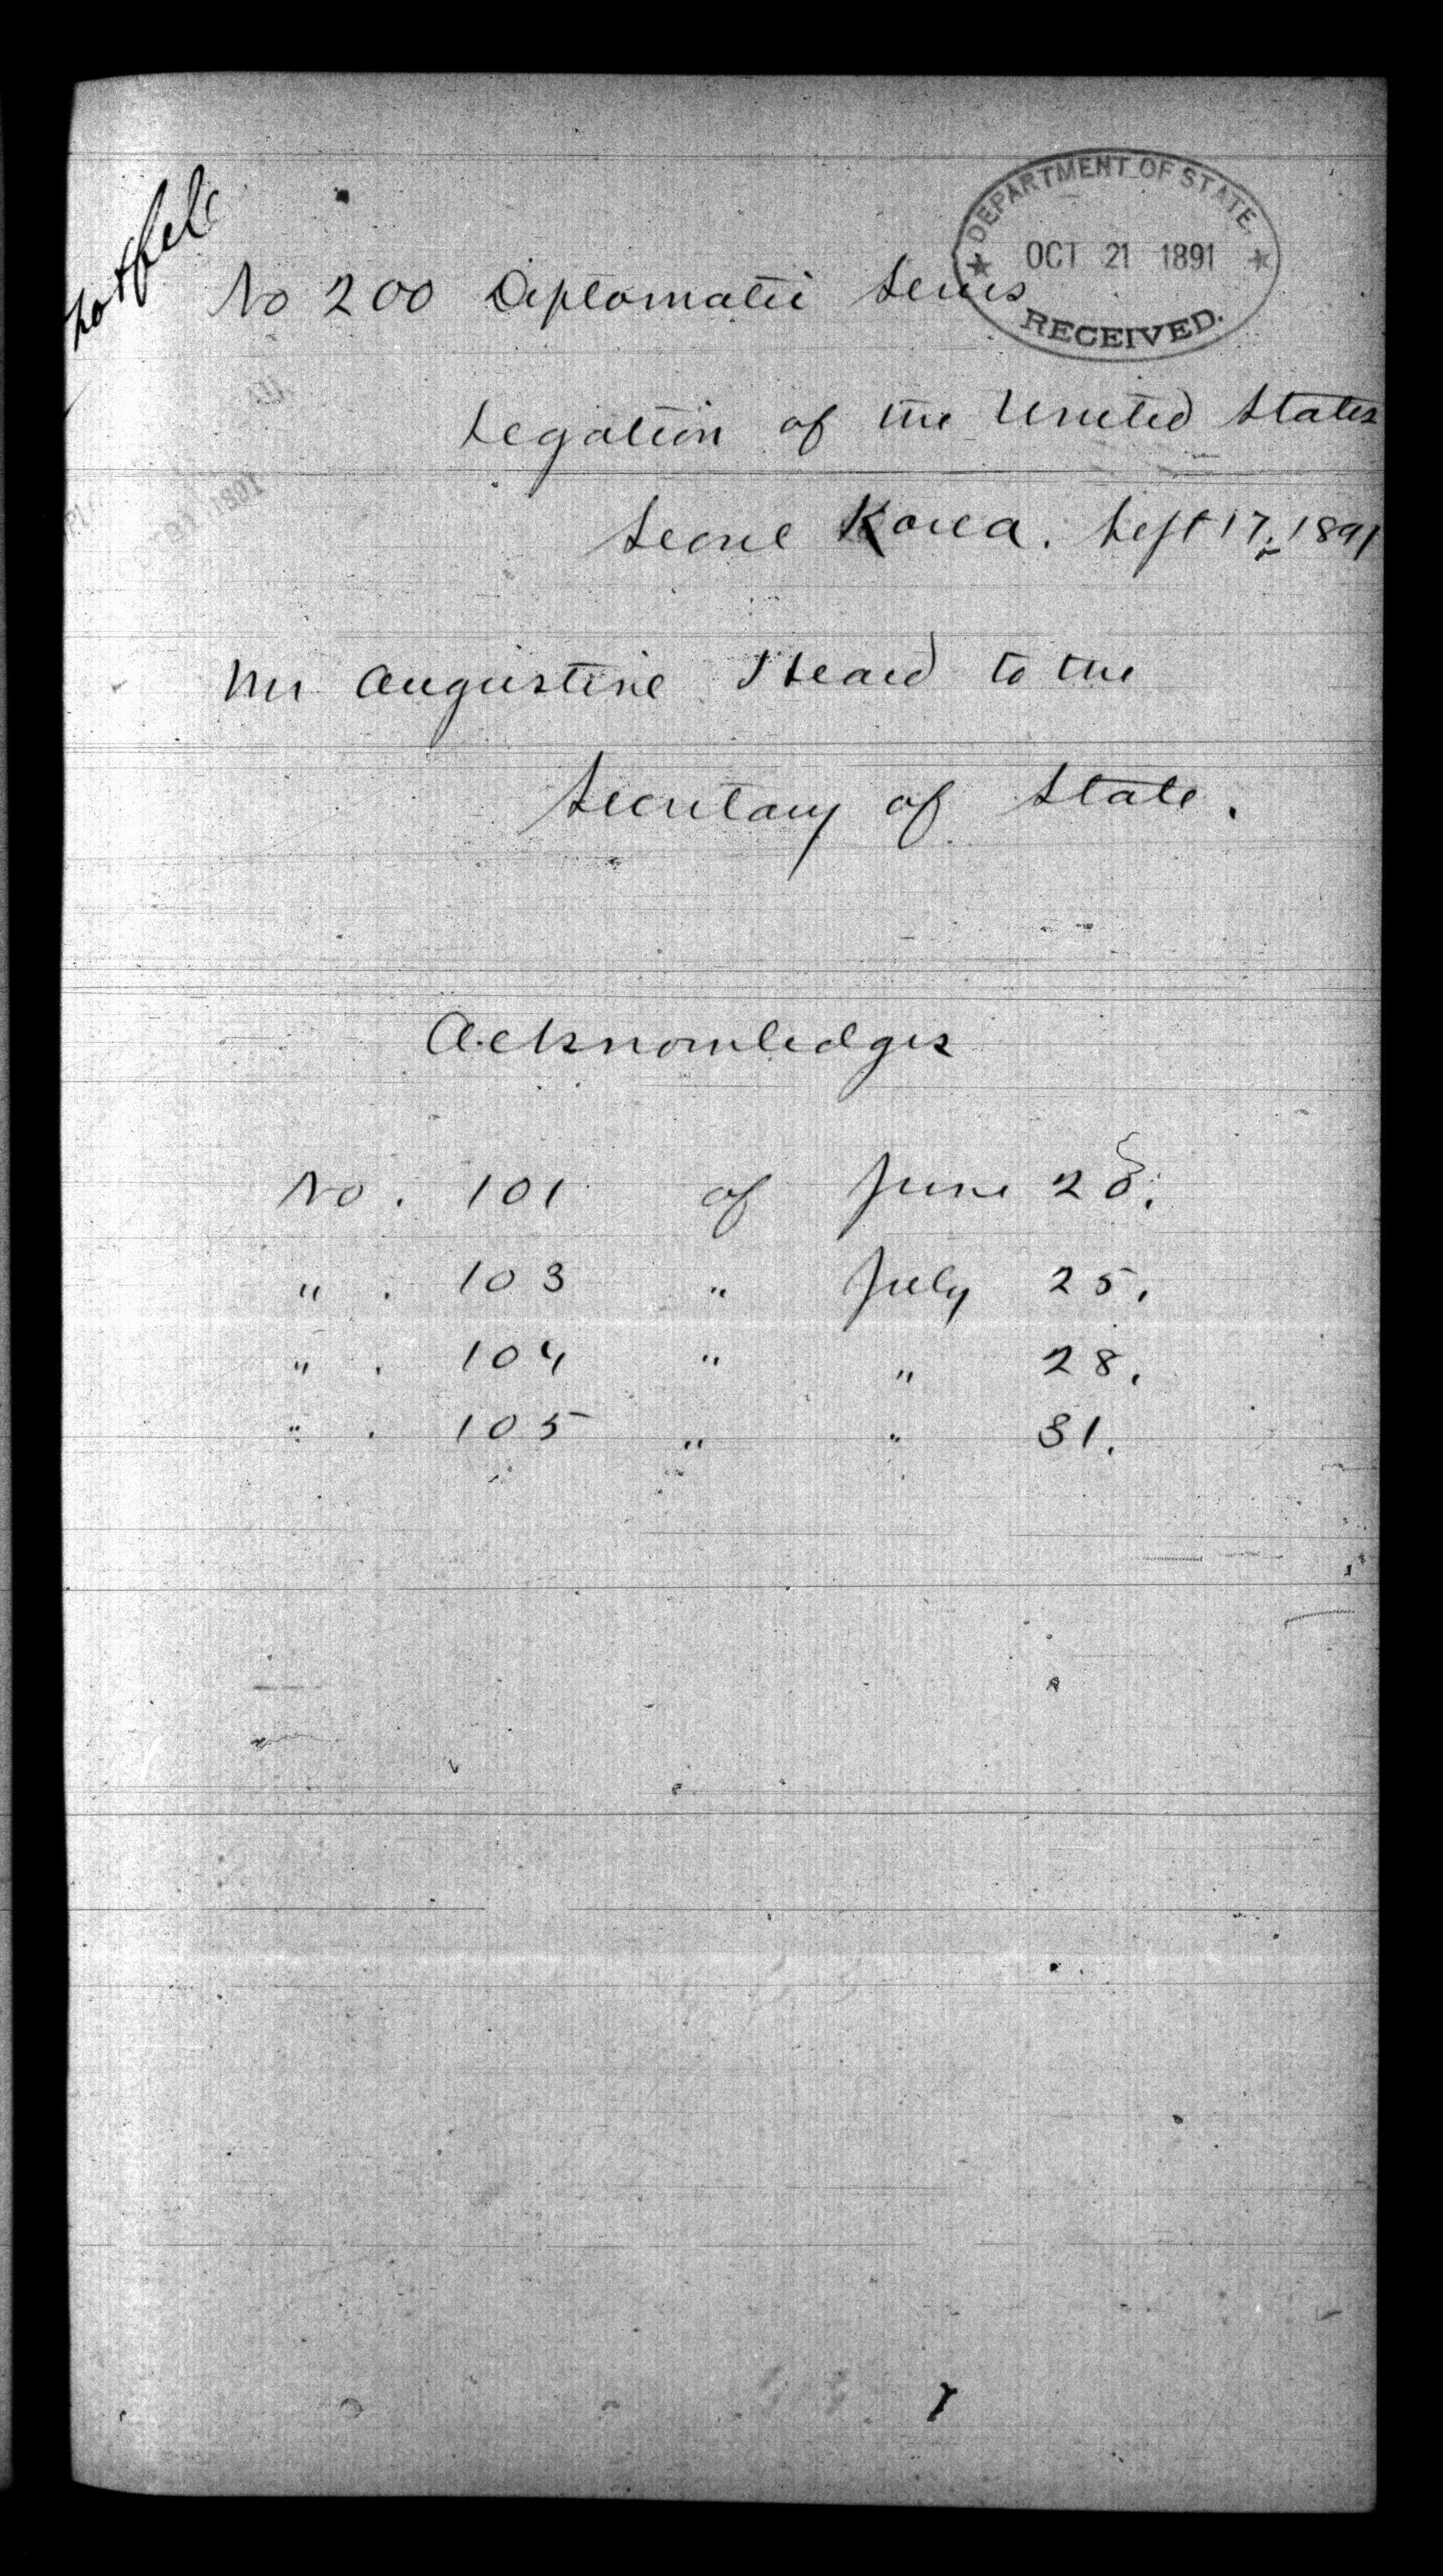 DEPARTMENT OF STATE,
OCT 21 1891
RECEIVED.
No 200 Diplomatic Series
Legation of the United States
Seoul Korea. Sept 17. 1891
Mr Augustine Heard to the
Secretary of State.
Acknowledges
No. 101 of June 28.
" . 103 " July 25.
" . 104 " " 28.
" . 105 " " 31.